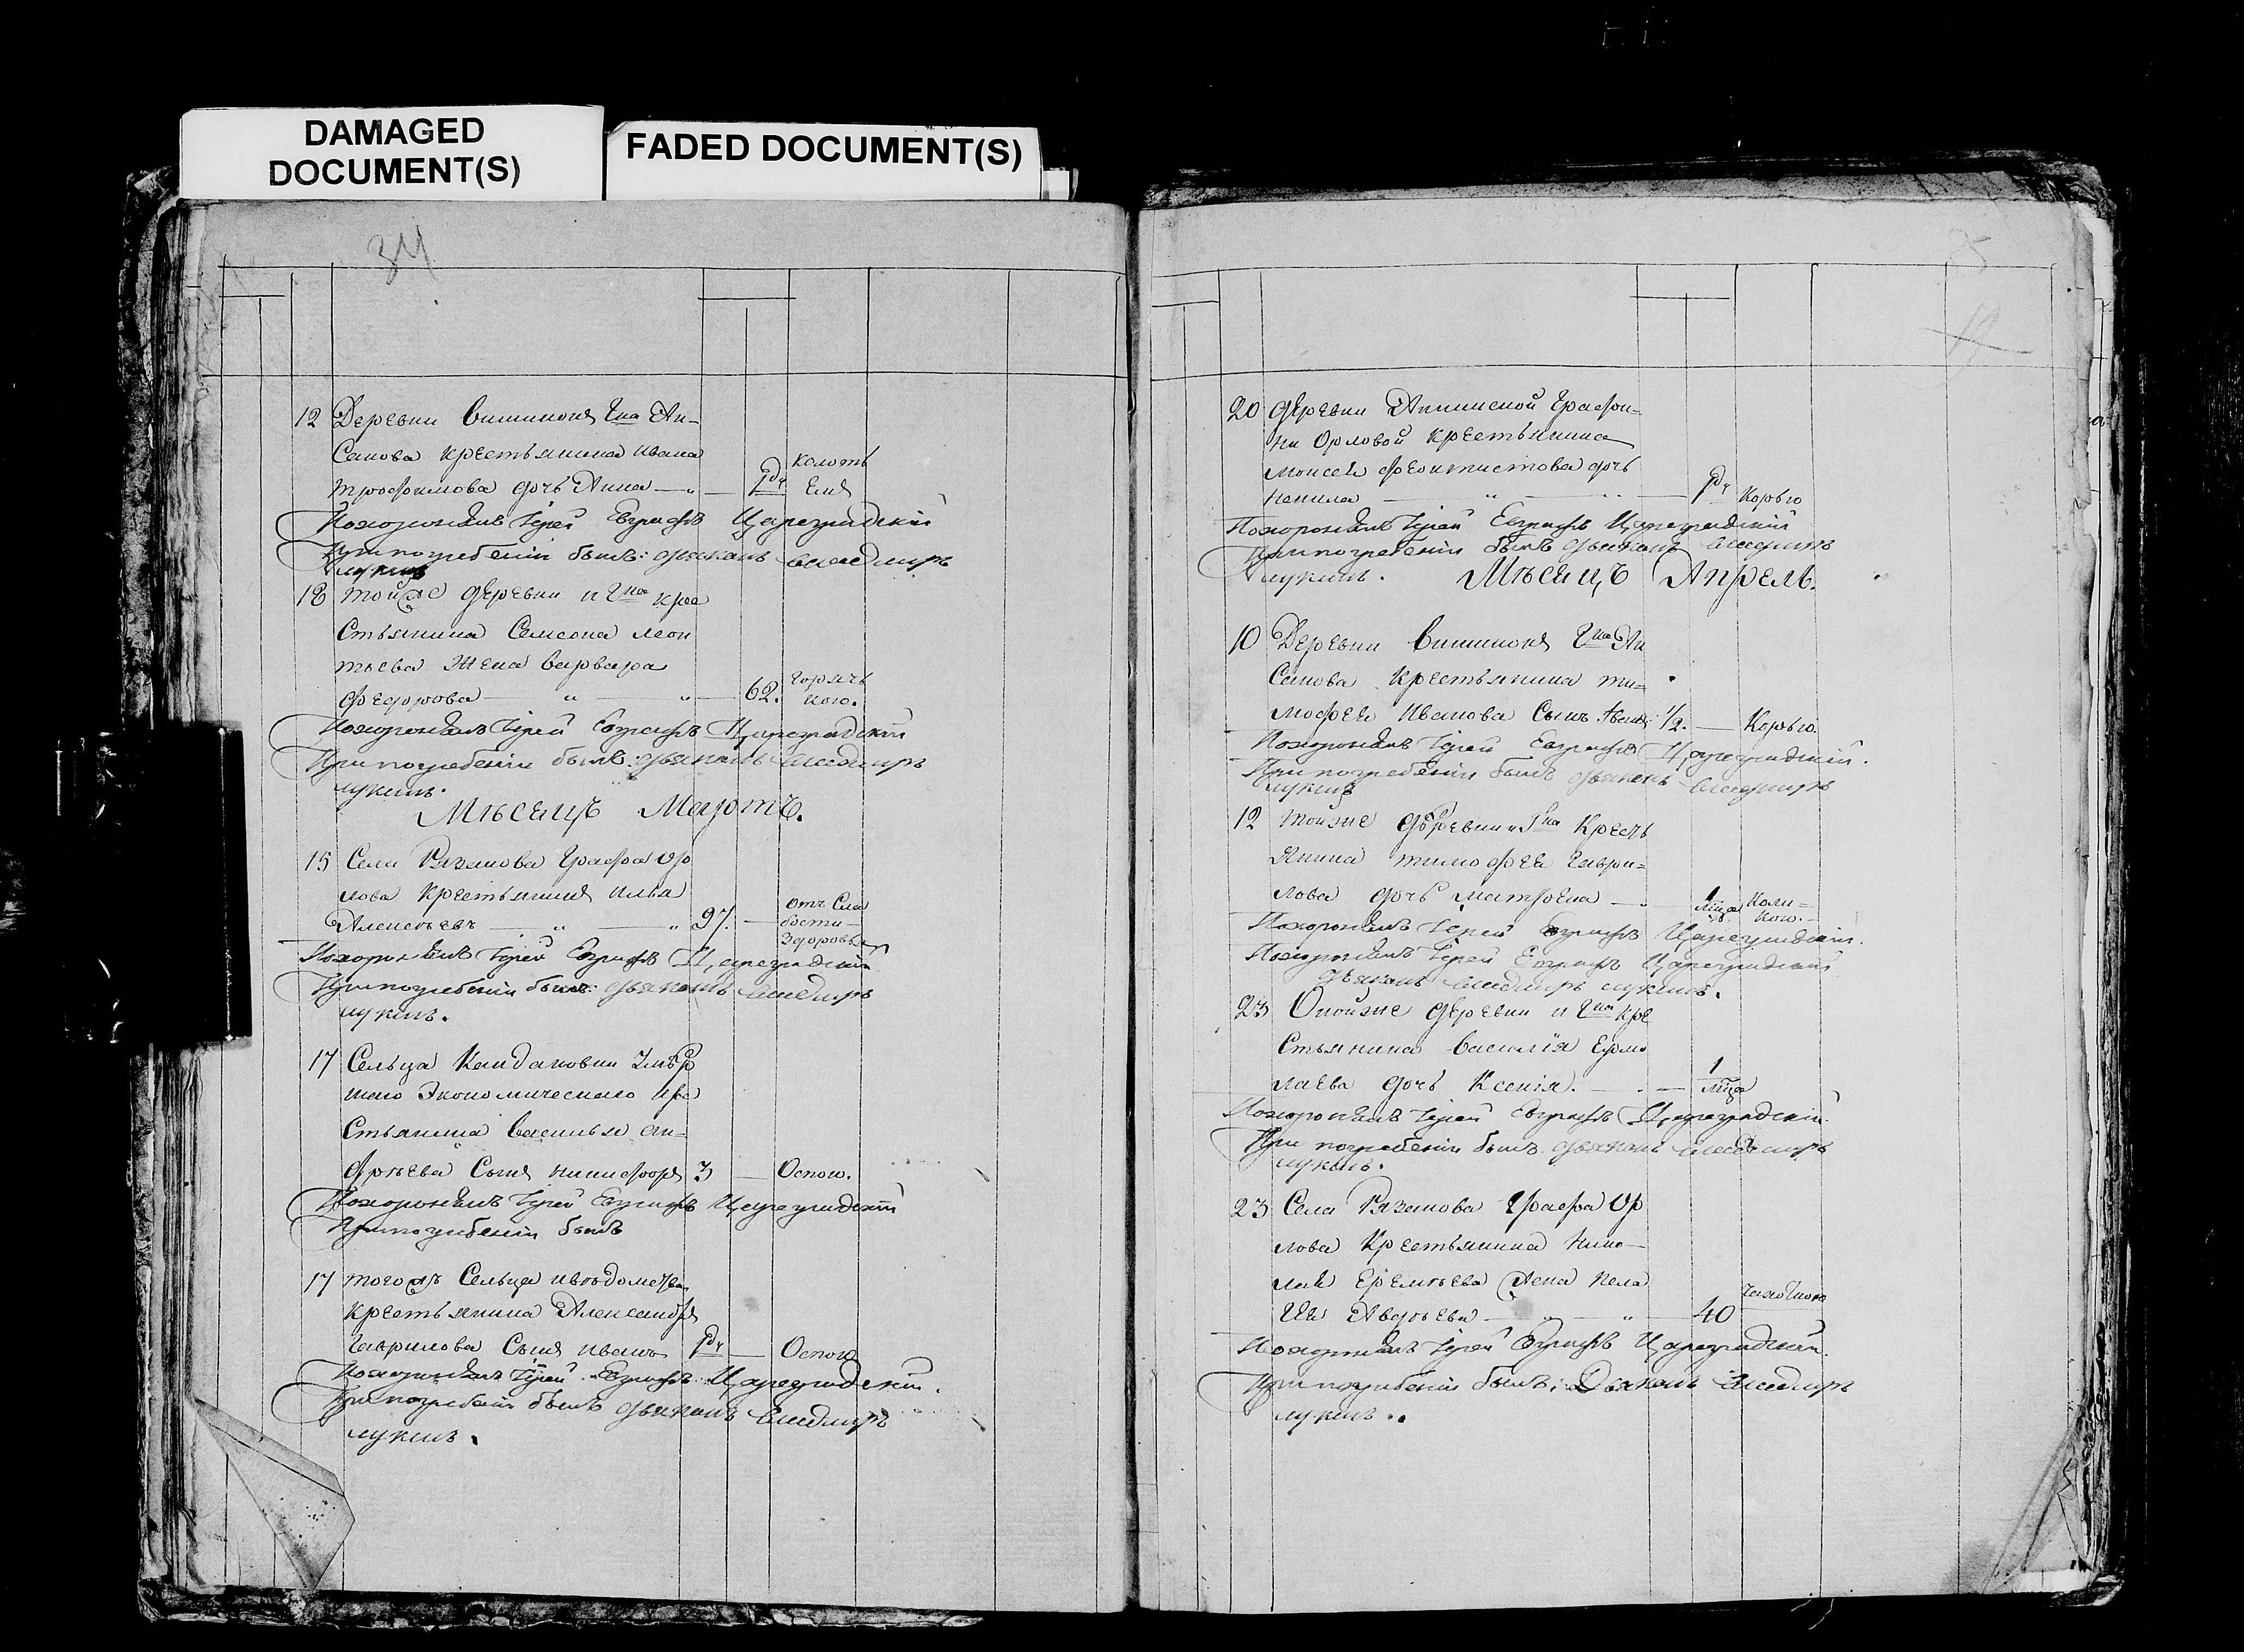 DAMAGED
DOCUMENT(S)
FADED DOCUMENT(S)
34
12 Деревни Вишинокъ Гна Ан-
Сапова крестьянина Ивана
Трофимова дочь Анна — 1 колоть
Ему
Похоронилъ Іерей Евграфъ Цареградскій
При погребеніи былъ: дьяконъ Владимръ
Лукинъ
18 тойже деревни и Гна кре
Стьянина Самсона леон
тьева Жена варвара
Федорова — 62. горяч
кою.
Похоронилъ Іерей Евграфъ Цареградскій
При погребеніи былъ: дьяконъ Владимръ
лукинъ.
Мѣсяцъ Мартъ.
15 Села Рязанова Графа Ор
лова Крестьянинъ Илья
Алексѣевъ — 97. — отъ Сла
бости
Здоровья
Похоронилъ Іерей Евграфъ Цареградскій
При погребеніи былъ: дьяконъ Владимръ
лукинъ.
17 Сельца Кандаковки
Экономическаго кре
Стьянина Василья Ан-
дрѣева Сынъ никифоръ 3 — Оспою.
Похоронилъ Іерей Евграфъ Цареградскій
При погребеніи былъ
17 тогожъ Сельца и вѣдомства
крестьянина Александра
Гаврилова Сынъ иванъ 1 — Оспою
Похоронилъ Іерей Евграфъ Цареградскій.
При погребеніи былъ дьяконъ Владимръ
лукинъ.
20 деревни Аннинской Графи-
ни Орловой крестьянина
Моисея феоктистова дочь
Ненила — 1 Корью
Похоронилъ Іерей Евграфъ Цареградскій
При погребеніи былъ дьяконъ Владимръ
лукинъ. Мѣсяцъ Апрель.
10 Деревни Вишинокъ Гна Ан
Сапова Крестьянина ти-
мофея Иванова Сынъ 1/2. — Корью.
Похоронилъ Іерей Евграфъ Цареградскій.
При погребеніи былъ дьяконъ Владимръ
лукинъ
12 Тойже деревни и Гна Кресть
Янина тимофея гаври-
лова дочь матрена — 1 мца
Похоронилъ Іерей Евграфъ Цареградскій.
Похоронилъ Іерей Евграфъ Цареградскій
дьяконъ Владимръ лукинъ.
23 Онойже деревни и Гна кре
Стьянина Василія Ермо
лаева дочь Ксенія. — 1
мца
Похоронилъ Іерей Евграфъ Цареградскій.
При погребеніи былъ дьяконъ Владимръ
лукинъ.
23 Села Рязанова Графа Ор
лова Крестьянина Нико-
лая Еремѣева Жена Пела
Гея Авдѣева — 40 чахоткою
Похоронилъ Іерей Евграфъ Цареградскій.
При погребеніи былъ: Дьяконъ Владимръ
лукинъ.